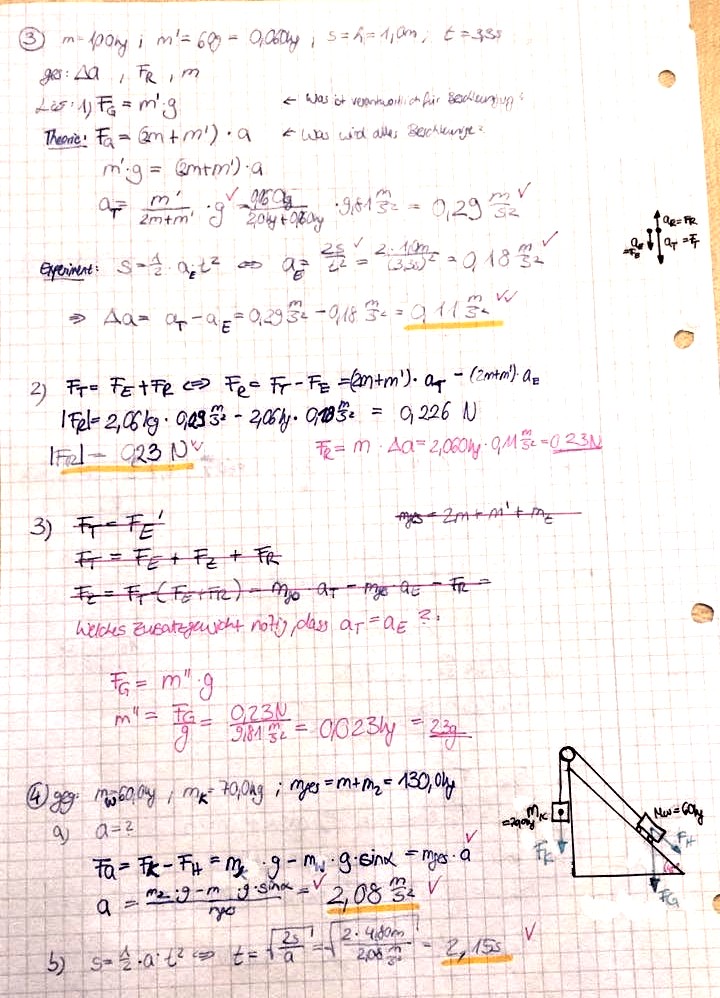 ③ m=1,00kg ; m'=60g=0,060kg ; s=h=1,0m ; t=3,3s
ges: Δa , F_R , m
Lös: 1) F_G = m'·g ← Was ist verantwortlich für Beschleunigung?
Theorie: F_a = (2m+m')·a ← Was wird alles Beschleunigt?
m'·g = (2m+m')·a
a_T = m'/(2m+m') · g ✓ = 0,060kg/(2,0kg+0,060kg) · 9,81 m/s² = 0,29 m/s² ✓
a_R=F_R
a_E=F_E a_T=F_T
Experiment: s=1/2·a_E·t² ⇔ a_E = 2s/t² ✓ = 2·1,0m/(3,3s)² = 0,18 m/s² ✓
⇒ Δa = a_T - a_E = 0,29 m/s² - 0,18 m/s² = 0,11 m/s² ✓✓
2) F_T = F_E + F_R ⇔ F_R = F_T - F_E = (2m+m')·a_T - (2m+m')·a_E
|F_R| = 2,06kg · 0,29 m/s² - 2,06kg · 0,18 m/s² = 0,226 N
|F_R| = 0,23 N ✓
F_R = m·Δa = 2,060kg · 0,11 m/s² = 0,23N
3) F_T = F_E'
m_ges = 2m + m' + m_Z
F_T = F_E + F_Z + F_R
F_Z = F_T - (F_E+F_R) = m_ges · a_T - m_ges · a_E - F_R =
Welches Zusatzgewicht nötig, dass a_T = a_E ?
F_G = m''·g
m'' = F_G/g = 0,23N/9,81 m/s² = 0,023kg = 23g
④ geg: m_W=60,0kg ; m_K=70,0kg ; m_ges = m+m_2 = 130,0kg
a) a=?
m_K
=70,0kg
m_W=60kg
F_K
F_H
F_G
F_a = F_K - F_H = m_K·g - m_W·g·sinα = m_ges·a ✓
a = (m_2·g - m g·sinα)/m_ges = ✓ 2,08 m/s² ✓
b) s=1/2·a·t² ⇔ t = √(2s/a) = √(2·4,80m/2,08 m/s²) = 2,15s ✓